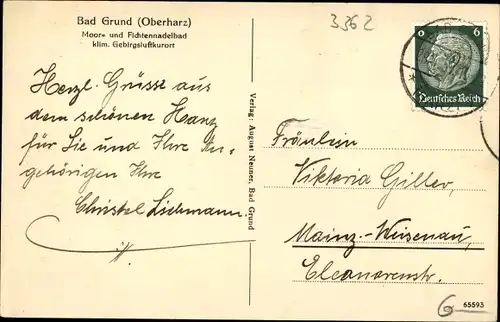 Bad Grund (Oberharz)
Moor= und Fichtennadelbad
klim. Gebirgsluftkurort
3362
6 6
Deutsches Reich
Herzl. Grüsse aus
dem schönen Harz
für Sie und Ihre An-
gehörigen Ihre
Christel
Verlag: August Neuner, Bad Grund
Fräulein
Viktoria Giller,
Mainz-Weisenau,
Eleanorenstr.
65593
6